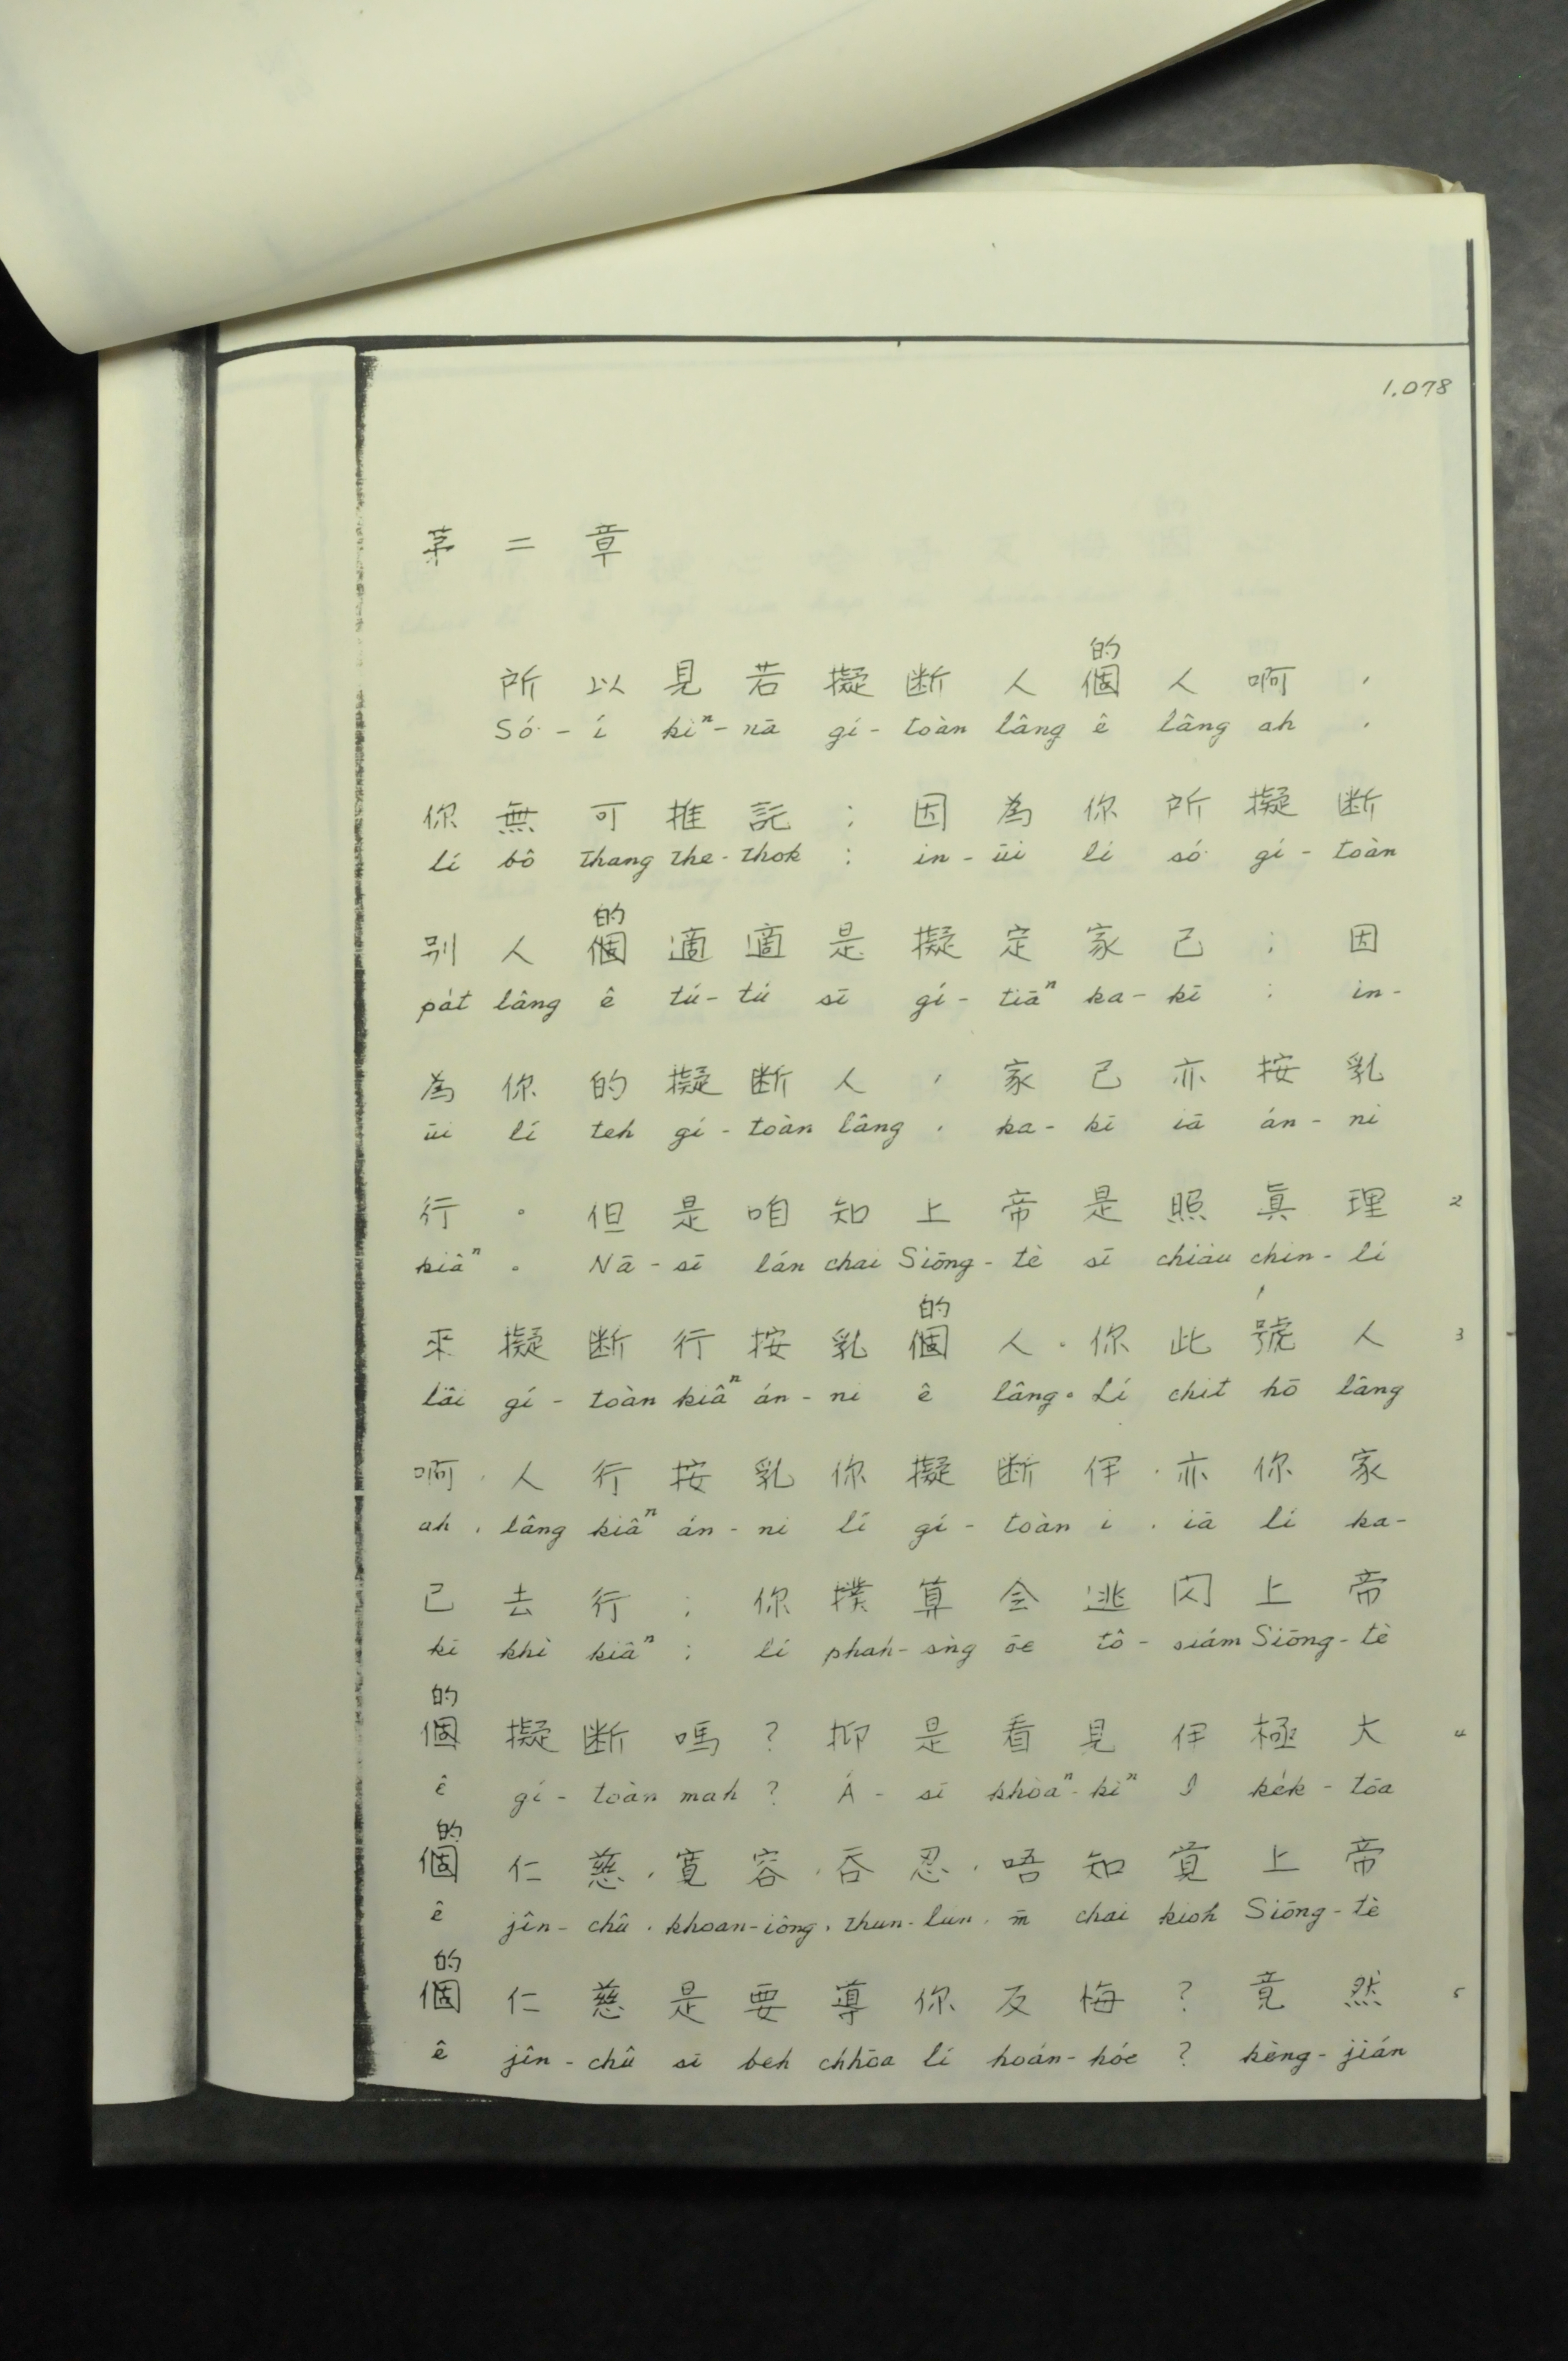 1.078
第二章
的
所以見若擬断人個人啊，
Só͘-í kìⁿ-nā gí-toàn lâng ê lâng ah，
你無可推託；因為你所擬断
lí bô thang the-thok；in-ūi lí só͘ gí-toàn
的
別人個適適是擬定家己；因
pa̍t lâng ê tú-tú sī gí-tiāⁿ ka-kī；in-
為你的擬断人，家己亦按乳
ūi lí teh gí-toàn lâng，ka-kī iā án-ni
行。但是咱知上帝是照眞理 2
kiâⁿ。Nā-sī lán chai Siōng-tè sī chiàu chin-lí
的
來擬断行按乳個人．你此號人 3
lâi gí-toàn kiâⁿ án-ni ê lâng。Lí chit hō lâng
啊，人行按乳你擬断伊，亦你家
ah，lâng kiâⁿ án-ni lí gí-toàn i，iā lí ka-
己去行；你撲算会逃闪上帝
kī khì kiâⁿ；lí phah-sǹg ōe tô-siám Siōng-tè
的
個擬断嗎？抑是看見伊極大 4
ê gí-toàn mah？Á-sī khòaⁿ-kìⁿ I ke̍k-tōa
的
個仁慈，寛容，吞忍，唔知覚上帝
ê jîn-chû，khoan-iông，thun-lún，m̄ chai kioh Siōng-tè
的
個仁慈是要導你反悔？竟然 5
ê jîn-chû sī beh chhōa lí hoán-hóe？kèng-jián